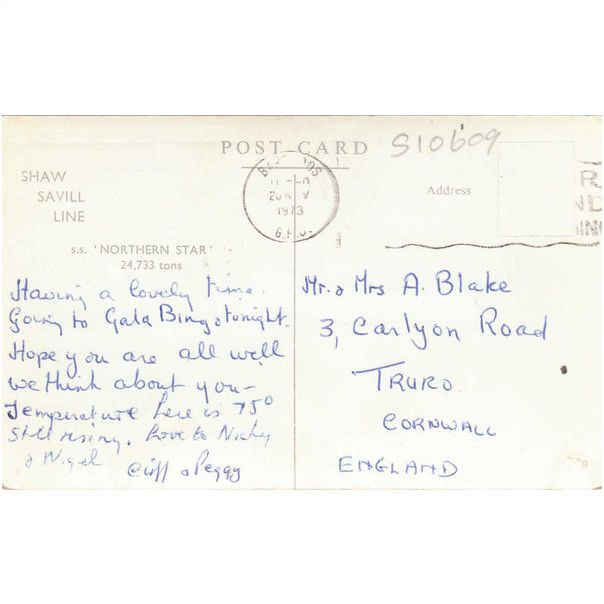 POST CARD
S10609
SHAW
SAVILL
LINE
s.s. 'NORTHERN STAR'
24,733 tons
Having a lovely time.
Going to Gala Bingo tonight.
Hope you are all well
we think about you -
Temperature here is 75°
still rising. Love to Nicky
& Nigel
Cliff & Peggy
1973
Address
Mr. & Mrs A. Blake
3, Carlyon Road
TRURO
CORNWALL
ENGLAND